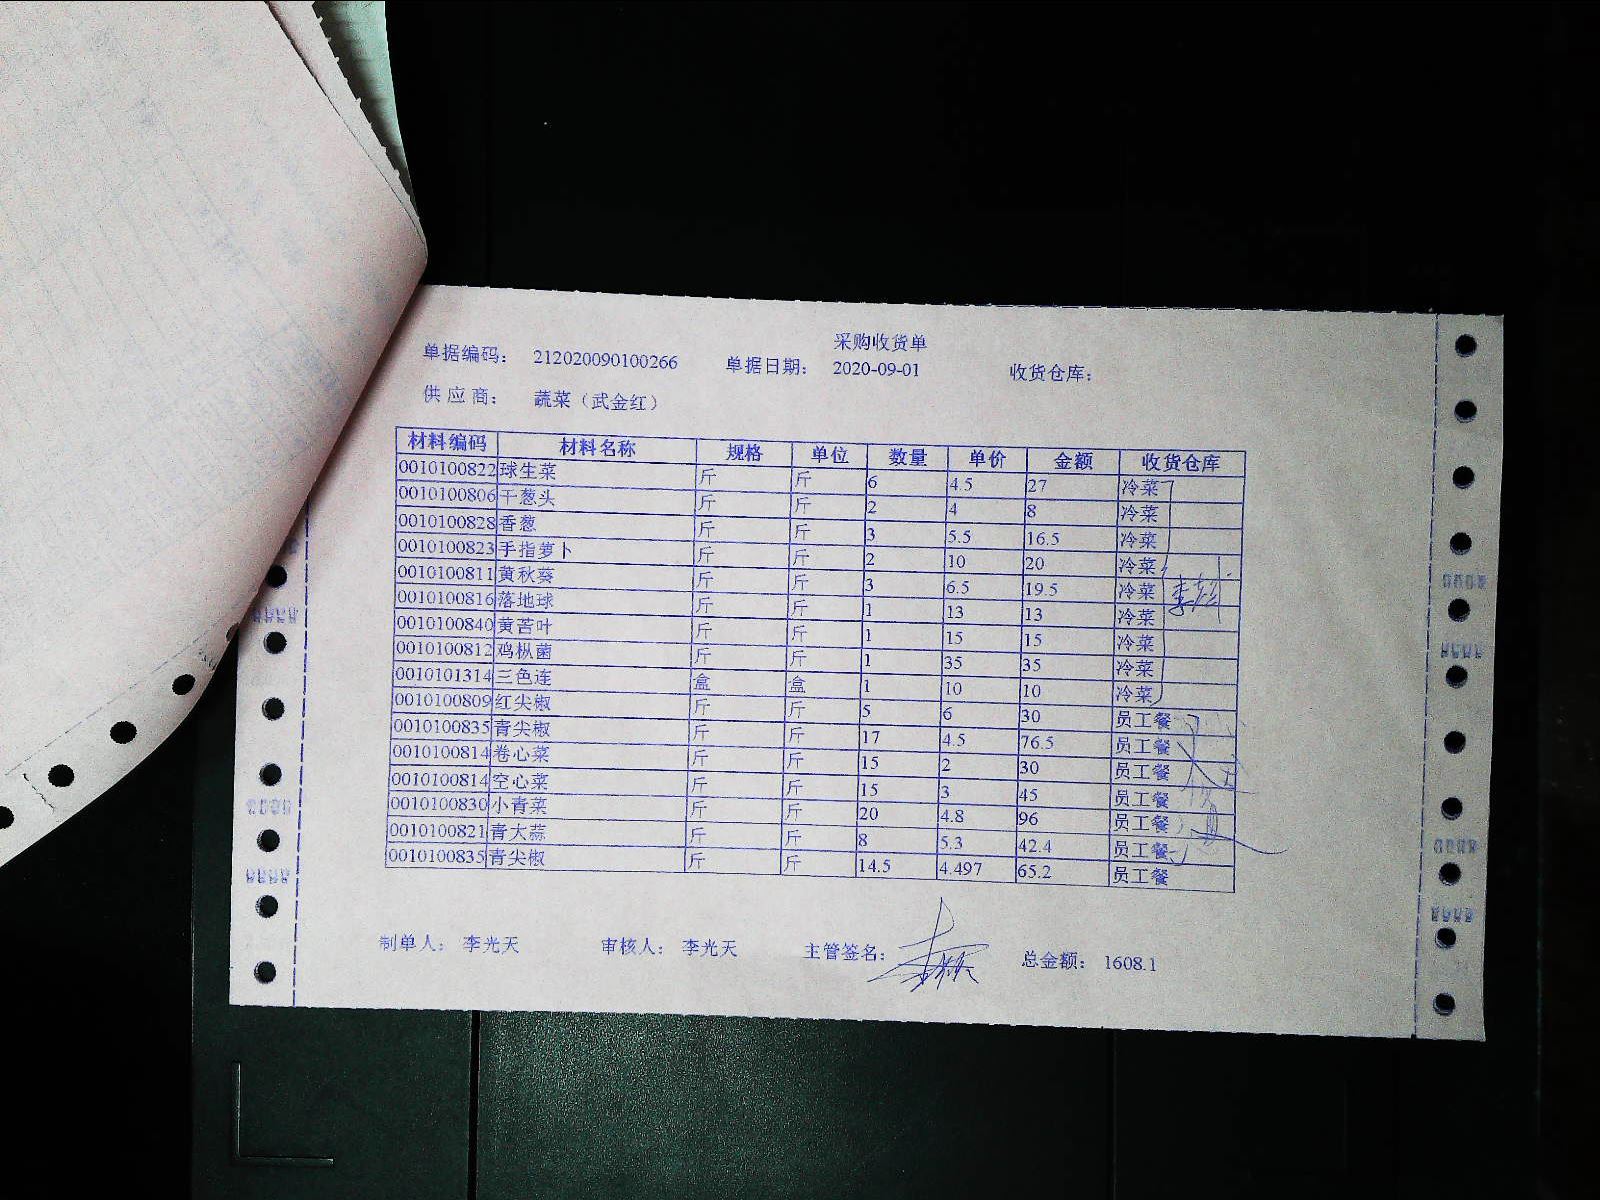 采购收货单
单据编码： 212020090100266 单据日期： 2020-09-01 收货仓库：
供 应 商： 蔬菜（武金红）
材料编码 材料名称 规格 单位 数量 单价 金额 收货仓库
0010100822 球生菜 斤 斤 6 4.5 27 冷菜
0010100806 干葱头 斤 斤 2 4 8 冷菜
0010100828 香葱 斤 斤 3 5.5 16.5 冷菜
0010100823 手指萝卜 斤 斤 2 10 20 冷菜
0010100811 黄秋葵 斤 斤 3 6.5 19.5 冷菜
0010100816 落地球 斤 斤 1 13 13 冷菜
0010100840 黄苦叶 斤 斤 1 15 15 冷菜
0010100812 鸡枞菌 斤 斤 1 35 35 冷菜
0010101314 三色连 盒 盒 1 10 10 冷菜
0010100809 红尖椒 斤 斤 5 6 30 员工餐
0010100835 青尖椒 斤 斤 17 4.5 76.5 员工餐
0010100814 卷心菜 斤 斤 15 2 30 员工餐
0010100814 空心菜 斤 斤 15 3 45 员工餐
0010100830 小青菜 斤 斤 20 4.8 96 员工餐
0010100821 青大蒜 斤 斤 8 5.3 42.4 员工餐
0010100835 青尖椒 斤 斤 14.5 4.497 65.2 员工餐
制单人： 李光天 审核人： 李光天 主管签名： 总金额： 1608.1